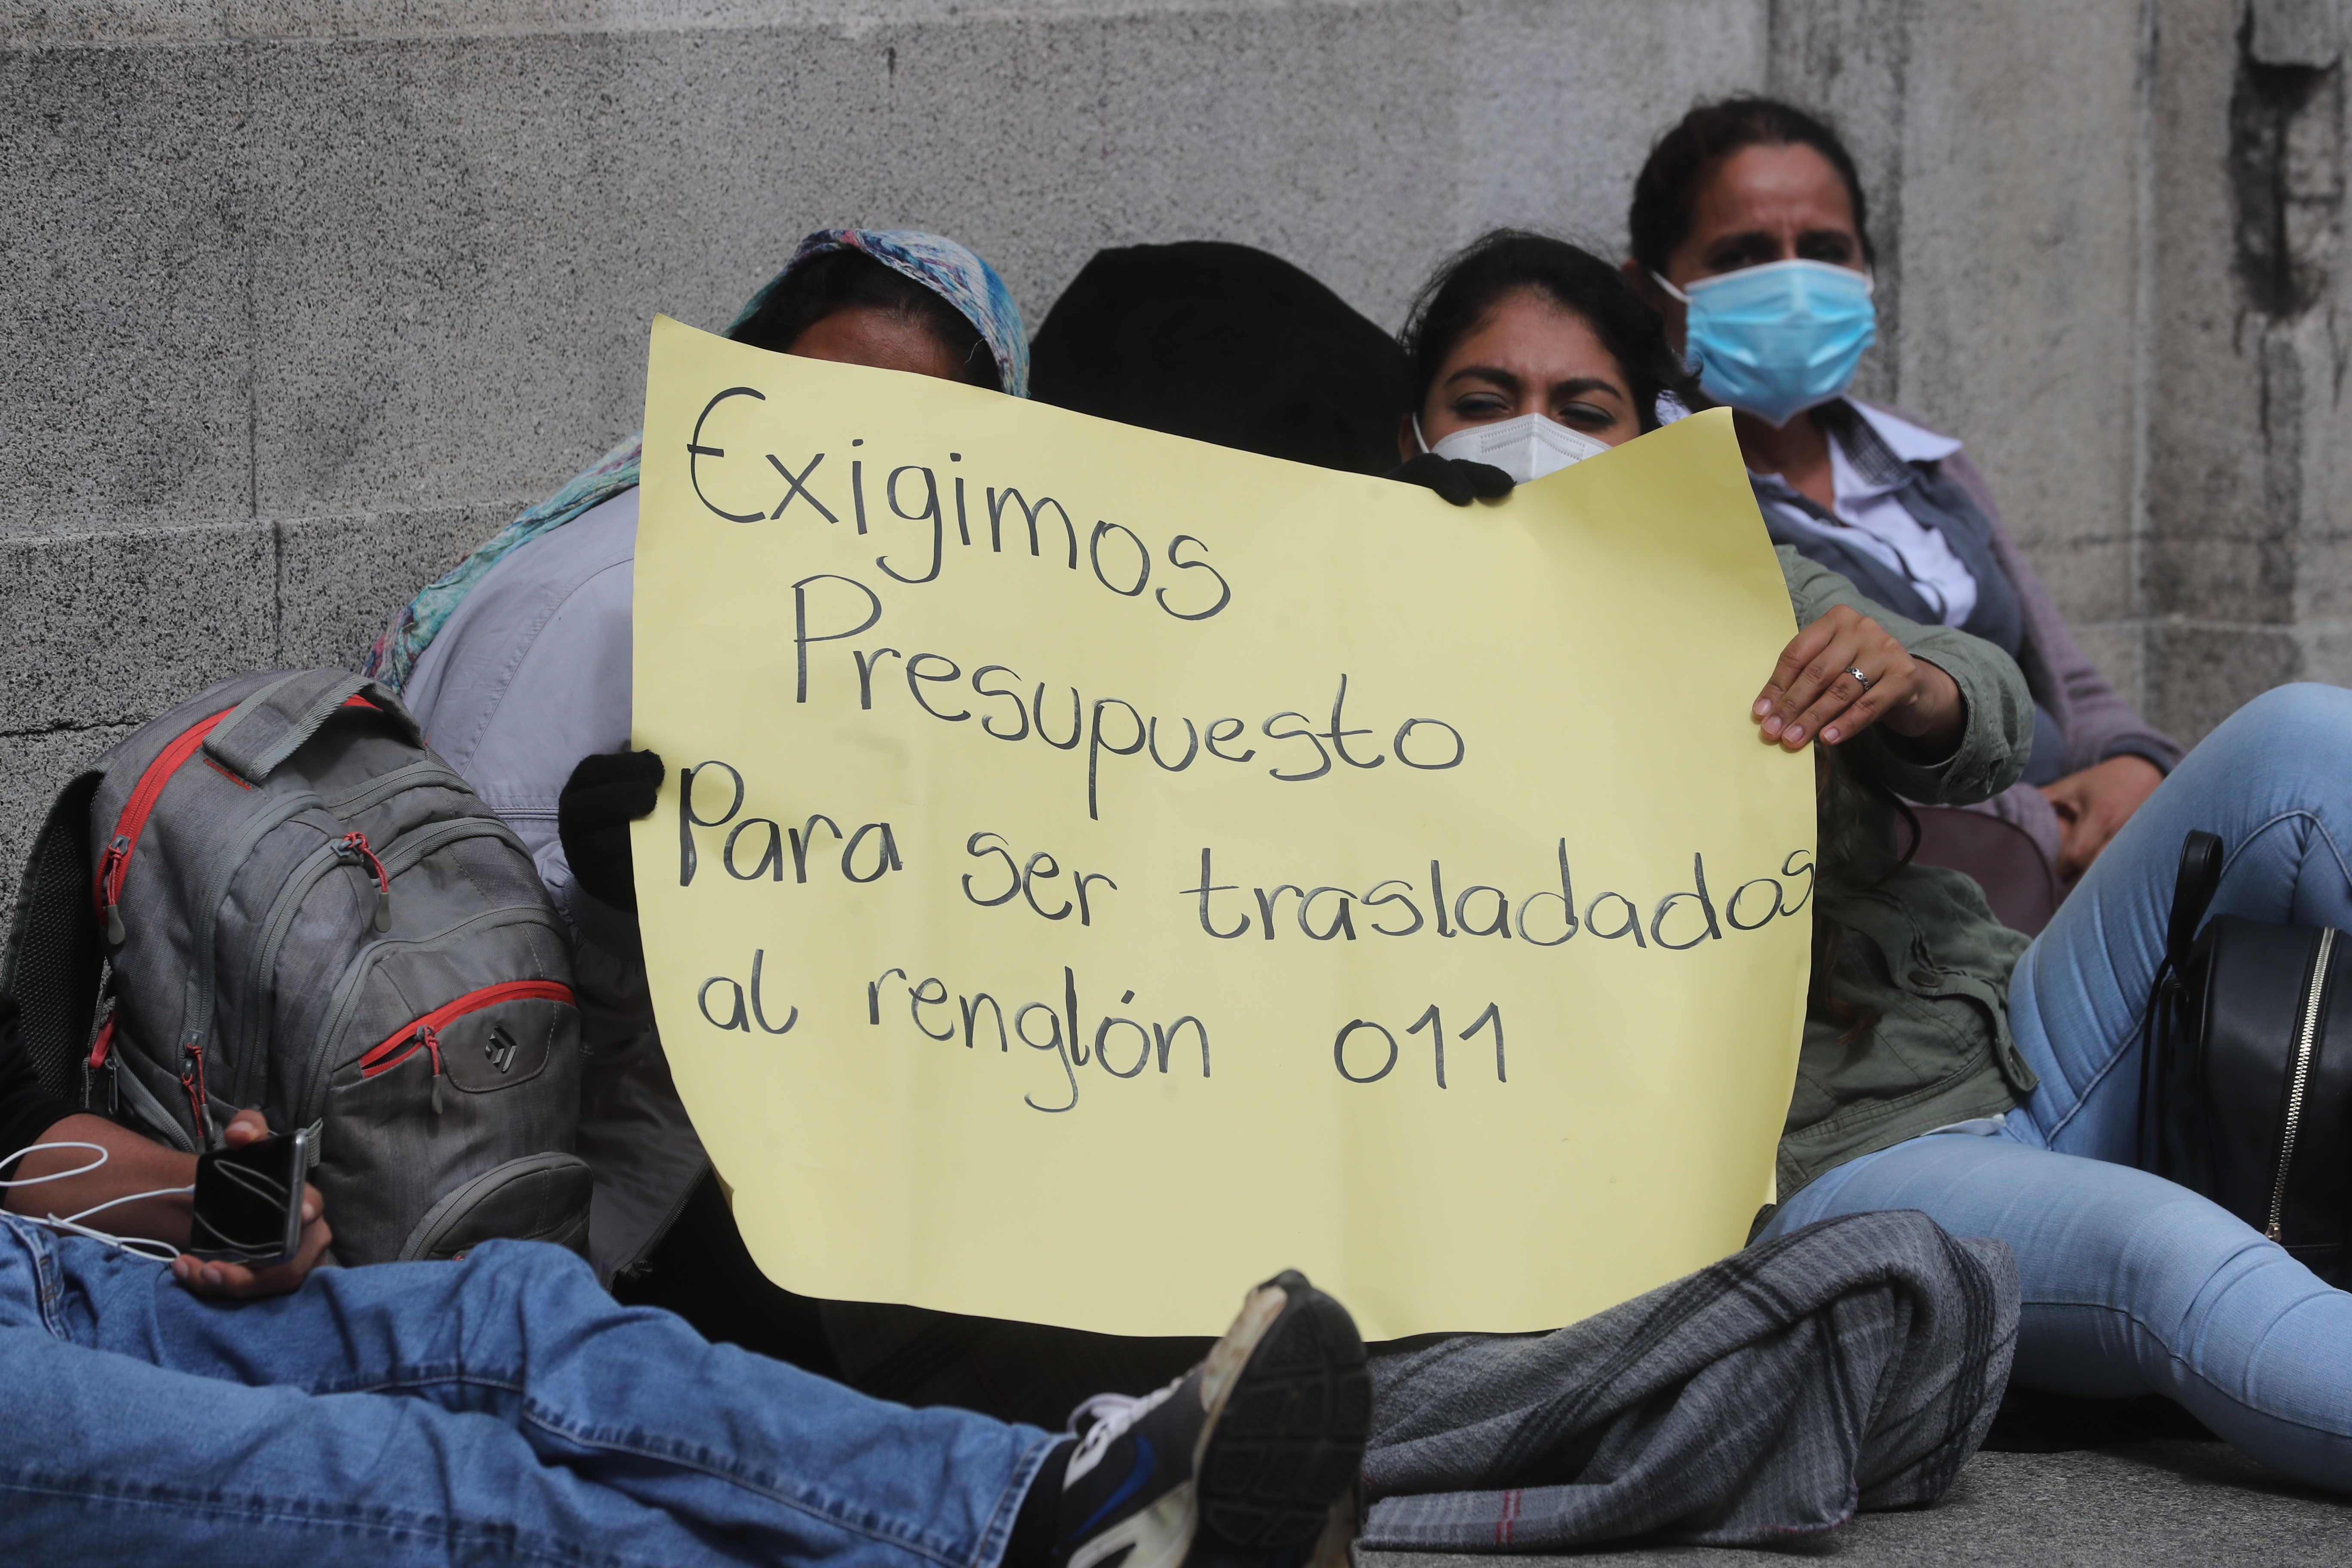 Exigimos
Presupuesto
Para ser trasladados
al renglón 011